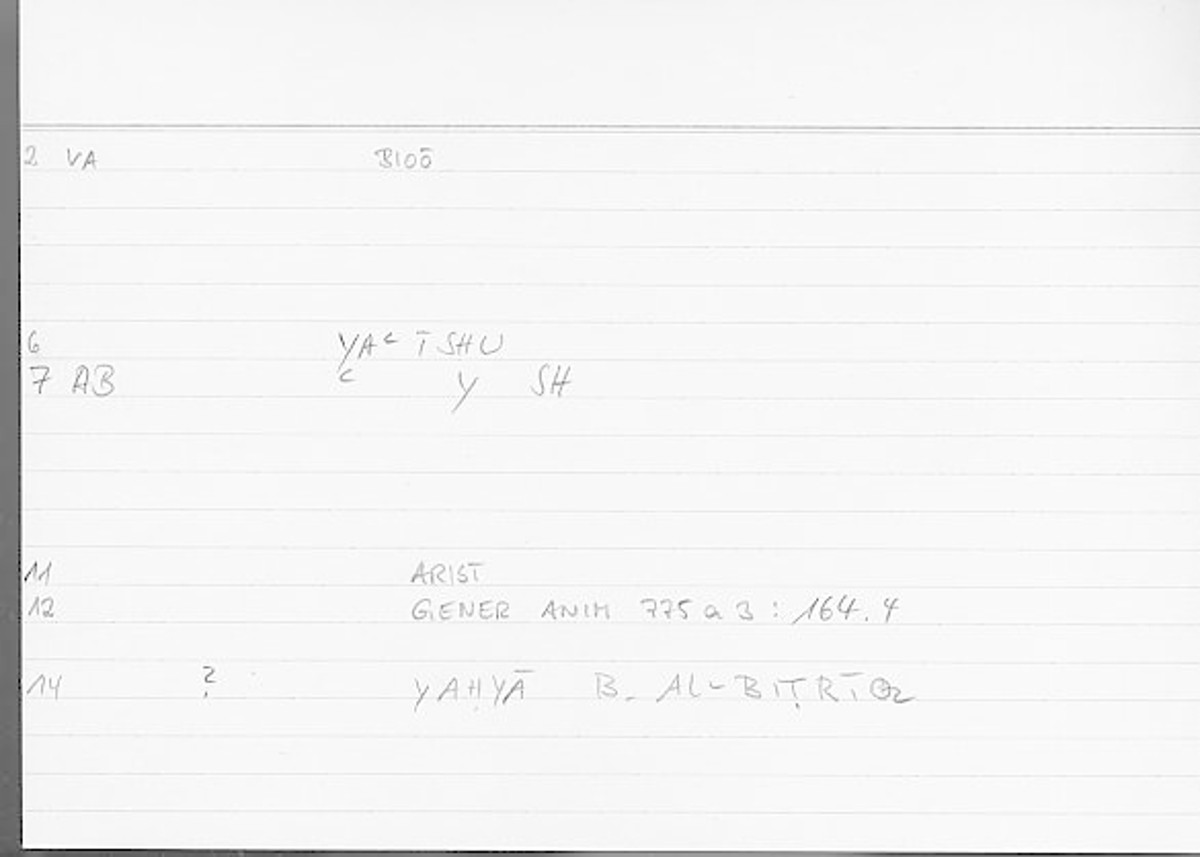 2 VA BIOŌ
6 YAᶜ ĪSHU
7 AB ᶜ Y SH
11 ARIST
12 GENER ANIM 775 a 3 : 164.4
14 ? YAḤYĀ B. AL-BIṬRĪQ